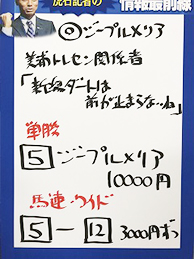 虎石記者の 情報最前線
◎ジープルメリア
美浦トレセン関係者
「新潟ダートは
前が止まらないね」
単勝
5 ジープルメリア
10000円
馬連・ワイド
5 ー 12 3000円ずつ